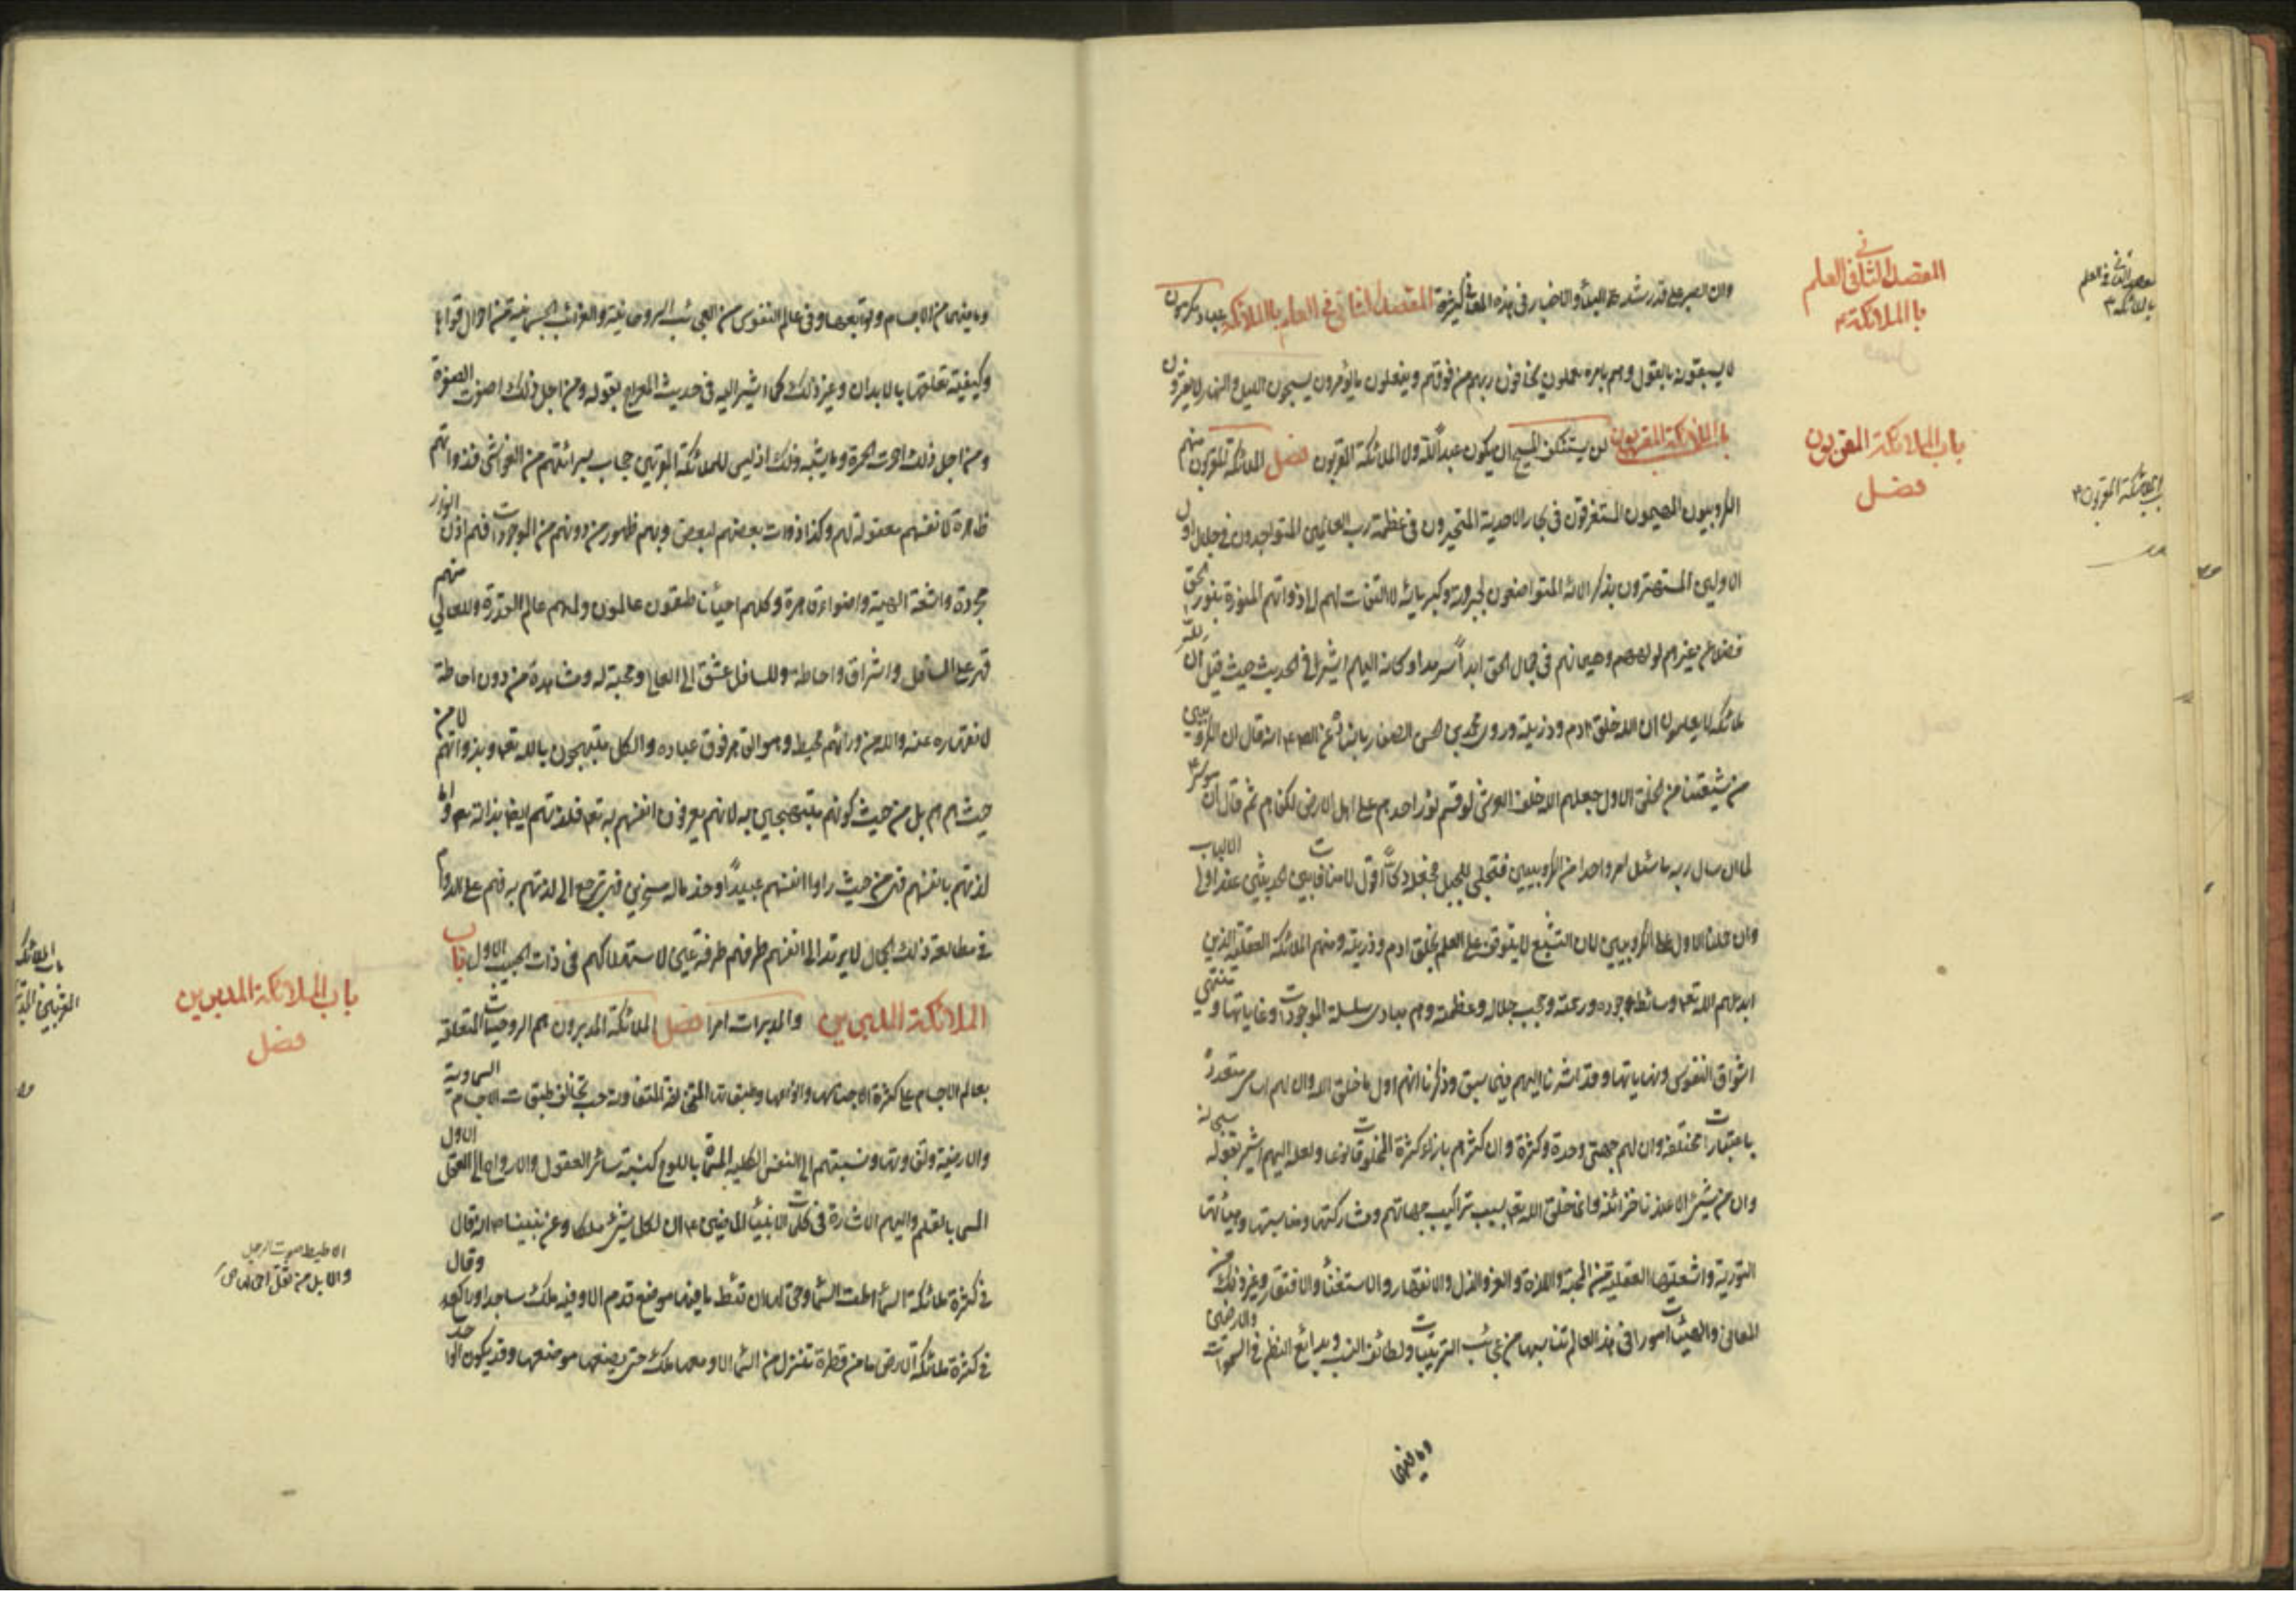 وان الصبر على قدر شدة البلاء والاخبار في هذه المعنى كثيرة المقصد الثاني في العلم بالملائكة عباد مكرمون
لا يسبقونه بالقول وهم بامره يعملون يخافون ربهم من فوقهم ويفعلون ما يؤمرون يسبحون الليل والنهار لا يفترون
باب الملائكة المقربون لن يستنكف المسيح ان يكون عبداً لله ولا الملائكة المقربون فصل الملائكة المقربون منهم
الكروبيون المهيمون المستغرقون في بحار الاحدية المتحيرون في عظمة رب العالمين المتواجدون في جلال اول
الاولين المستهترون بذكر آلائه المتواضعون لجبروته وكبريائه لا التفات لهم الى ذواتهم المنورة بنور الحق
فضلا عن غيرهم لولههم وهيمانهم في جمال الحق ابداً سرمدا وكانه اليهم اشير في الحديث حيث قيل ان لله
ملائكة لا يعلمون ان الله خلق ادم وذريته وروى محمد بن الحسن الصفار باسناده عن الصادق انه قال ان الكروبيين
من شيعتنا من الخلق الاول جعلهم الله خلف العرش لو قسم نور احدهم على اهل الارض لكفاهم ثم قال ان موسى
لما ان سال ربه ما سئل امر واحدا من الكروبيين فتجلى للجبل فجعله دكاً اقول لا منافات بين الحديثين عند اولي الالباب
وان حملنا الاول على الكروبيين لان التشيع لا يتوقف على العلم بخلق ادم وذريته ومنهم الملائكة العقلية الذين
ابدعهم الله تعالى وسائط جوده ورحمته وحجب جلاله وعظمته وهم مبادي سلسلة الموجودات وغاياتها ومنتهى
اشواق النفوس ونهاياتها وقد اشرنا اليهم فيما سبق وذكرنا انهم اول ما خلق الله وان لهم اسامي متعددة
باعتبارات مختلفة وان لهم جهتي وحدة وكثرة وان كثرتهم بازاء كثرة المخلوقات نوعا ولعله اليهم اشير بقوله سبحانه
وان من شيئ الا عندنا خزائنه وانما خلق الله تعالى بسبب تراكيب جهاتهم ومشاركتها ومناسبتها وهيئاتها
النورية واشعتها العقلية من المحبة واللذة والعز والذل والانقهار والاستغناء والافتقار وغير ذلك من
المعاني والهيئات امورا في هذا العالم تناسبها من عجائب الترتيبات ولطائف النسب وبدائع النظم في السموات والارضين
وما فيهما
المقصد الثاني في العلم
بالملائكة
باب الملائكة المقربون
فصل
المقصد الثاني في العلم
بالملائكة
باب الملائكة المقربون
وما فيهما من الاجسام وتوابعها وفي عالم النفوس من العجائب الروحانية والغرائب الجسمانية من احوال قواها
وكيفية تعلقها بالابدان وغير ذلك كما اشير اليه في حديث المعراج بقوله ومن اجل ذلك اصفرت الصفرة
ومن اجل ذلك احمرت الحمرة وما يشبه ذلك اذ ليس للملائكة المقربين حجاب لبرائتهم من الغواشي فذواتهم
ظاهرة لانفسهم معقولة لهم وكذا ذوات بعضهم لبعض وبهم ظهور من دونهم من الموجودات فهم اذن انوار
مجردة واشعة الهية واضواء قاهرة وكلهم احياء ناطقون عالمون ولهم عالم القدرة وللعالي منهم
قهر على السافل واشراق واحاطة وللسافل عشق الى العالي ومحبة له ومشاهدة من دون احاطة
لانقهاره عنه والله من ورائهم محيط وهو القاهر فوق عباده والكل مبتهجون بالله تعالى وبذواتهم لا من
حيث هم هم بل من حيث كونهم مبتهجين به لانهم يعرفون انفسهم به تعالى فلذتهم ايضا بذاته تعالى واما
لذتهم بانفسهم فهي من حيث راوا انفسهم عبيداً وخدما له مسخرين فهي ترجع الى لذتهم به فهم على الدوام
في مطالعة ذلك الجمال لا يرتد الى انفسهم طرفهم طرفة عين لاستهلاكهم في ذات الحبيب الاول باب
الملائكة المدبرين والمدبرات امرا فصل الملائكة المدبرون هم الروحانيات المتعلقة
بعالم الاجسام على كثرة اجناسها وانواعها وطبقاتها المختلفة المتفاوتة حسب تخالف طبقات الاجسام السماوية
والارضية وتفاوتها ونسبتهم الى النفس الكلية المسماة باللوح كنسبة سائر العقول والارواح الى العقل الاول
المسمى بالقلم واليهم الاشارة في كلمات الانبياء الماضين ان لكل شيئ ملكا وعن نبينا انه قال
في كثرة ملائكة السماء اطت السماء وحق لها ان تئط ما فيها موضع قدم الا وفيه ملك ساجد او راكع وقال
في كثرة ملائكة الارض ما من قطرة تنزل من السماء الا ومعها ملك حتى يضعها موضعها وقد يكون الواحد
باب الملائكة المدبرين
فصل
الاطيط صوت الرحل
والابل من ثقل احمالها ص
باب الملائكة